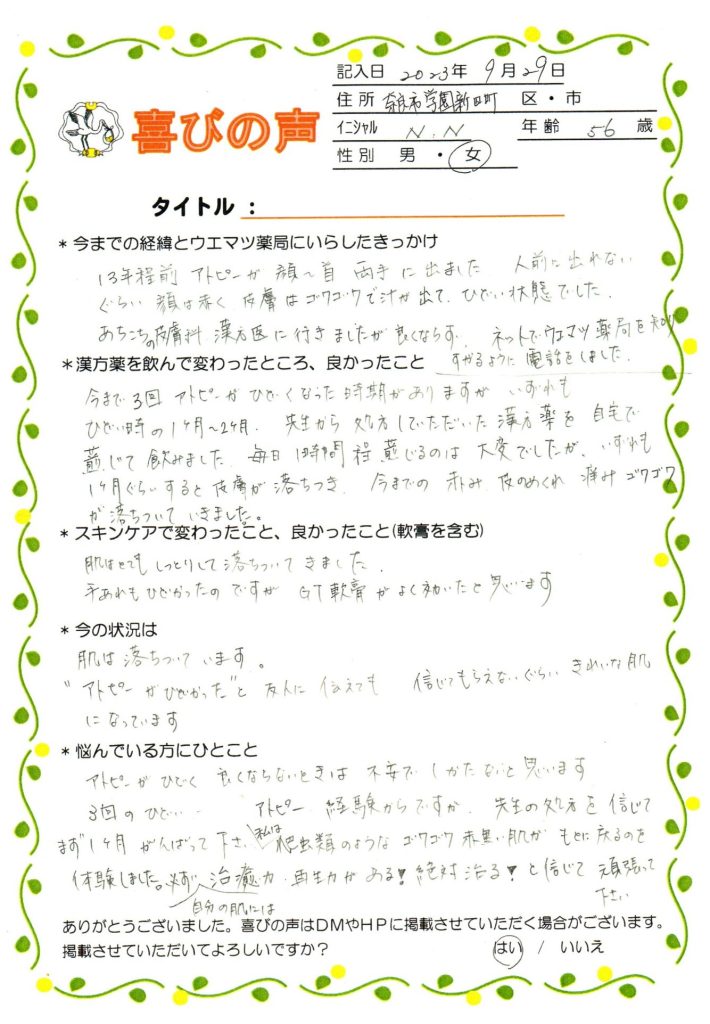 記入日 2023年 9月29日
住所 奈良市学園新田町 区・市
喜びの声
イニシャル N.N 年齢 56 歳
性別 男・女
タイトル：
*今までの経緯とウエマツ薬局にいらしたきっかけ
13年程前 アトピーが 顔〜首 両手に出ました。人前に出れない
ぐらい 顔は赤く 皮膚はゴワゴワで汁が出て、ひどい状態でした。
あちこちの皮膚科 漢方医に行きましたが良くならず、ネットでウエマツ薬局を知り
すがるように電話をしました。
*漢方薬を飲んで変わったところ、良かったこと
今まで3回 アトピーがひどくなった時期がありますが いずれも
ひどい時の1ヶ月〜2ヶ月、先生から処方していただいた漢方薬を自宅で
煎じて飲みました。毎日1時間程煎じるのは大変でしたが、いずれも
1ヶ月ぐらいすると皮膚が落ちつき、今までの 赤み 皮のめくれ 痛み ゴワゴワ
が落ちついていきました。
*スキンケアで変わったこと、良かったこと(軟膏を含む)
肌はとてもしっとりして落ちついてきました。
手あれもひどかったのですが GT軟膏がよく効いたと思います
*今の状況は
肌は落ちついています。
"アトピーがひどかった"と友人に伝えても 信じてもらえないぐらい きれいな肌
になっています
*悩んでいる方にひとこと
アトピーがひどく 良くならないときは 不安でしかたないと思います
3回のひどい アトピー 経験からですが、先生の処方を信じて
まず1ヶ月がんばって下さい。私は爬虫類のようなゴワゴワ赤黒い肌がもとに戻るのを
体験しました。必ず自分の肌には治癒力・再生力がある！絶対治る！と信じて頑張って
下さい
ありがとうございました。喜びの声はDMやHPに掲載させていただく場合がございます。
掲載させていただいてよろしいですか？ はい / いいえ